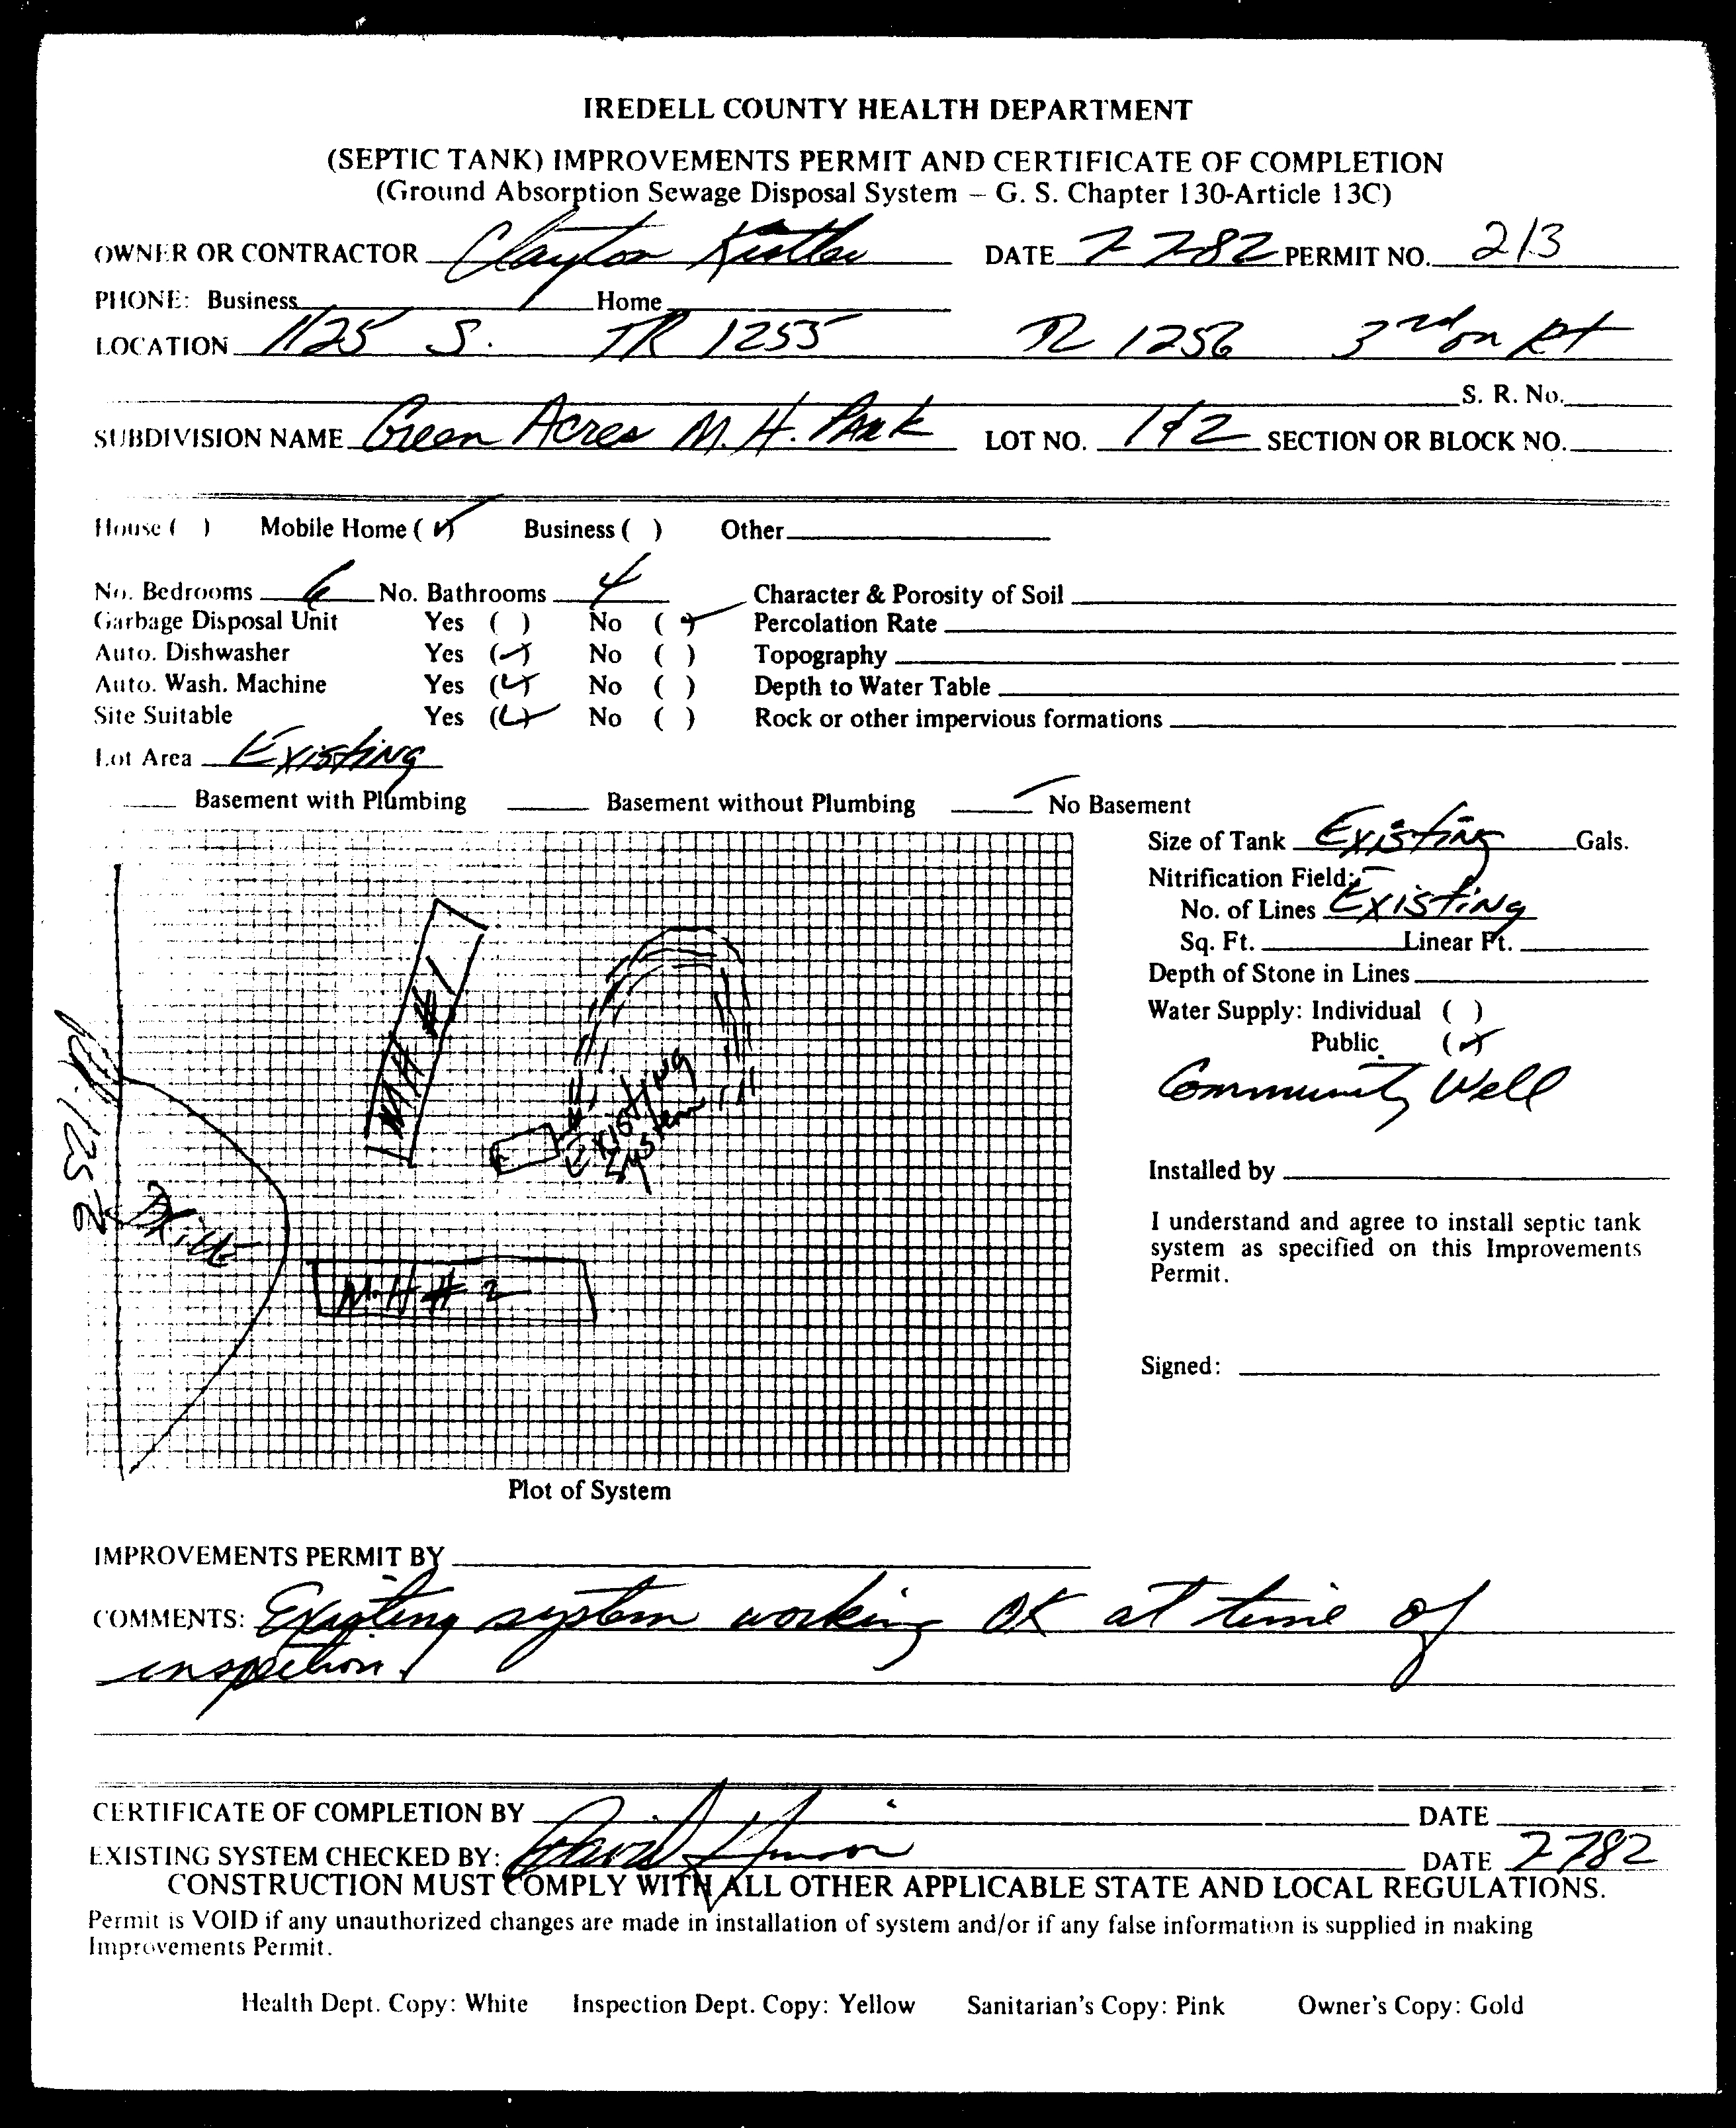 IREDELL COUNTY HEALTH DEPARTMENT
(SEPTIC TANK) IMPROVEMENTS PERMIT AND CERTIFICATE OF COMPLETION
(Ground Absorption Sewage Disposal System – G. S. Chapter 130-Article 13C)
OWNER OR CONTRACTOR Clayton Kistler DATE 7 7 82 PERMIT NO. 213
PHONE: Business Home
LOCATION 1125 S. TR 1255 TR 1256 3rd on Rt
S. R. No.
SUBDIVISION NAME Green Acres M.H. Park LOT NO. 1 & 2 SECTION OR BLOCK NO.
House ( ) Mobile Home (✓) Business ( ) Other
No. Bedrooms 6 No. Bathrooms 4 Character & Porosity of Soil
Garbage Disposal Unit Yes ( ) No (✓) Percolation Rate
Auto. Dishwasher Yes (✓) No ( ) Topography
Auto. Wash. Machine Yes (✓) No ( ) Depth to Water Table
Site Suitable Yes (✓) No ( ) Rock or other impervious formations
Lot Area Existing
Basement with Plumbing Basement without Plumbing ✓ No Basement
Size of Tank Existing Gals.
Nitrification Field:
No. of Lines Existing
Sq. Ft. Linear Ft.
Depth of Stone in Lines
Water Supply: Individual ( )
Public (✓)
Community Well
Installed by
I understand and agree to install septic tank
system as specified on this Improvements
Permit.
Signed:
MH #1
Existing
System
Rd. 1256
Drive
M.H # 2
Plot of System
IMPROVEMENTS PERMIT BY
COMMENTS: Existing system working OK at time of
inspection.
CERTIFICATE OF COMPLETION BY DATE
EXISTING SYSTEM CHECKED BY: David DATE 7 7 82
CONSTRUCTION MUST COMPLY WITH ALL OTHER APPLICABLE STATE AND LOCAL REGULATIONS.
Permit is VOID if any unauthorized changes are made in installation of system and/or if any false information is supplied in making
Improvements Permit.
Health Dept. Copy: White Inspection Dept. Copy: Yellow Sanitarian's Copy: Pink Owner's Copy: Gold